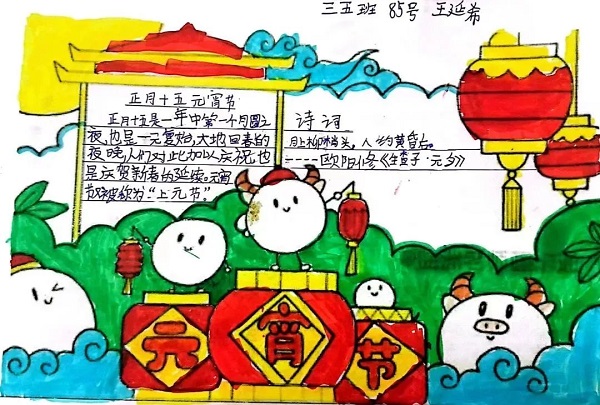 三五班 85号 王延希
正月十五元宵节
正月十五是一年中第一个月圆之
夜,也是一元复始,大地回春的
夜晚,人们对此加以庆祝,也
是庆贺新春的延续。元宵
节又被称为:"上元节"。
诗词
月上柳梢头,人约黄昏后。
----欧阳修《生查子·元夕》
元宵节